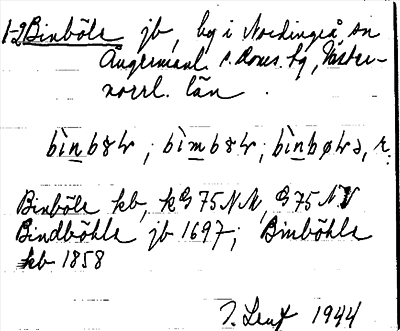 1-2 Binböle jb, by i Nordingrå sn
Ångermanl. s. doms. hg, Väster-
norrl. län.
bìnbölr; bìmbölr; bìnbølrə, r.
Binböle kb, kG 75 NM, G 75 NV
Bindböhle jb 1697; Binböhle
kb 1858
J. Lent 1944